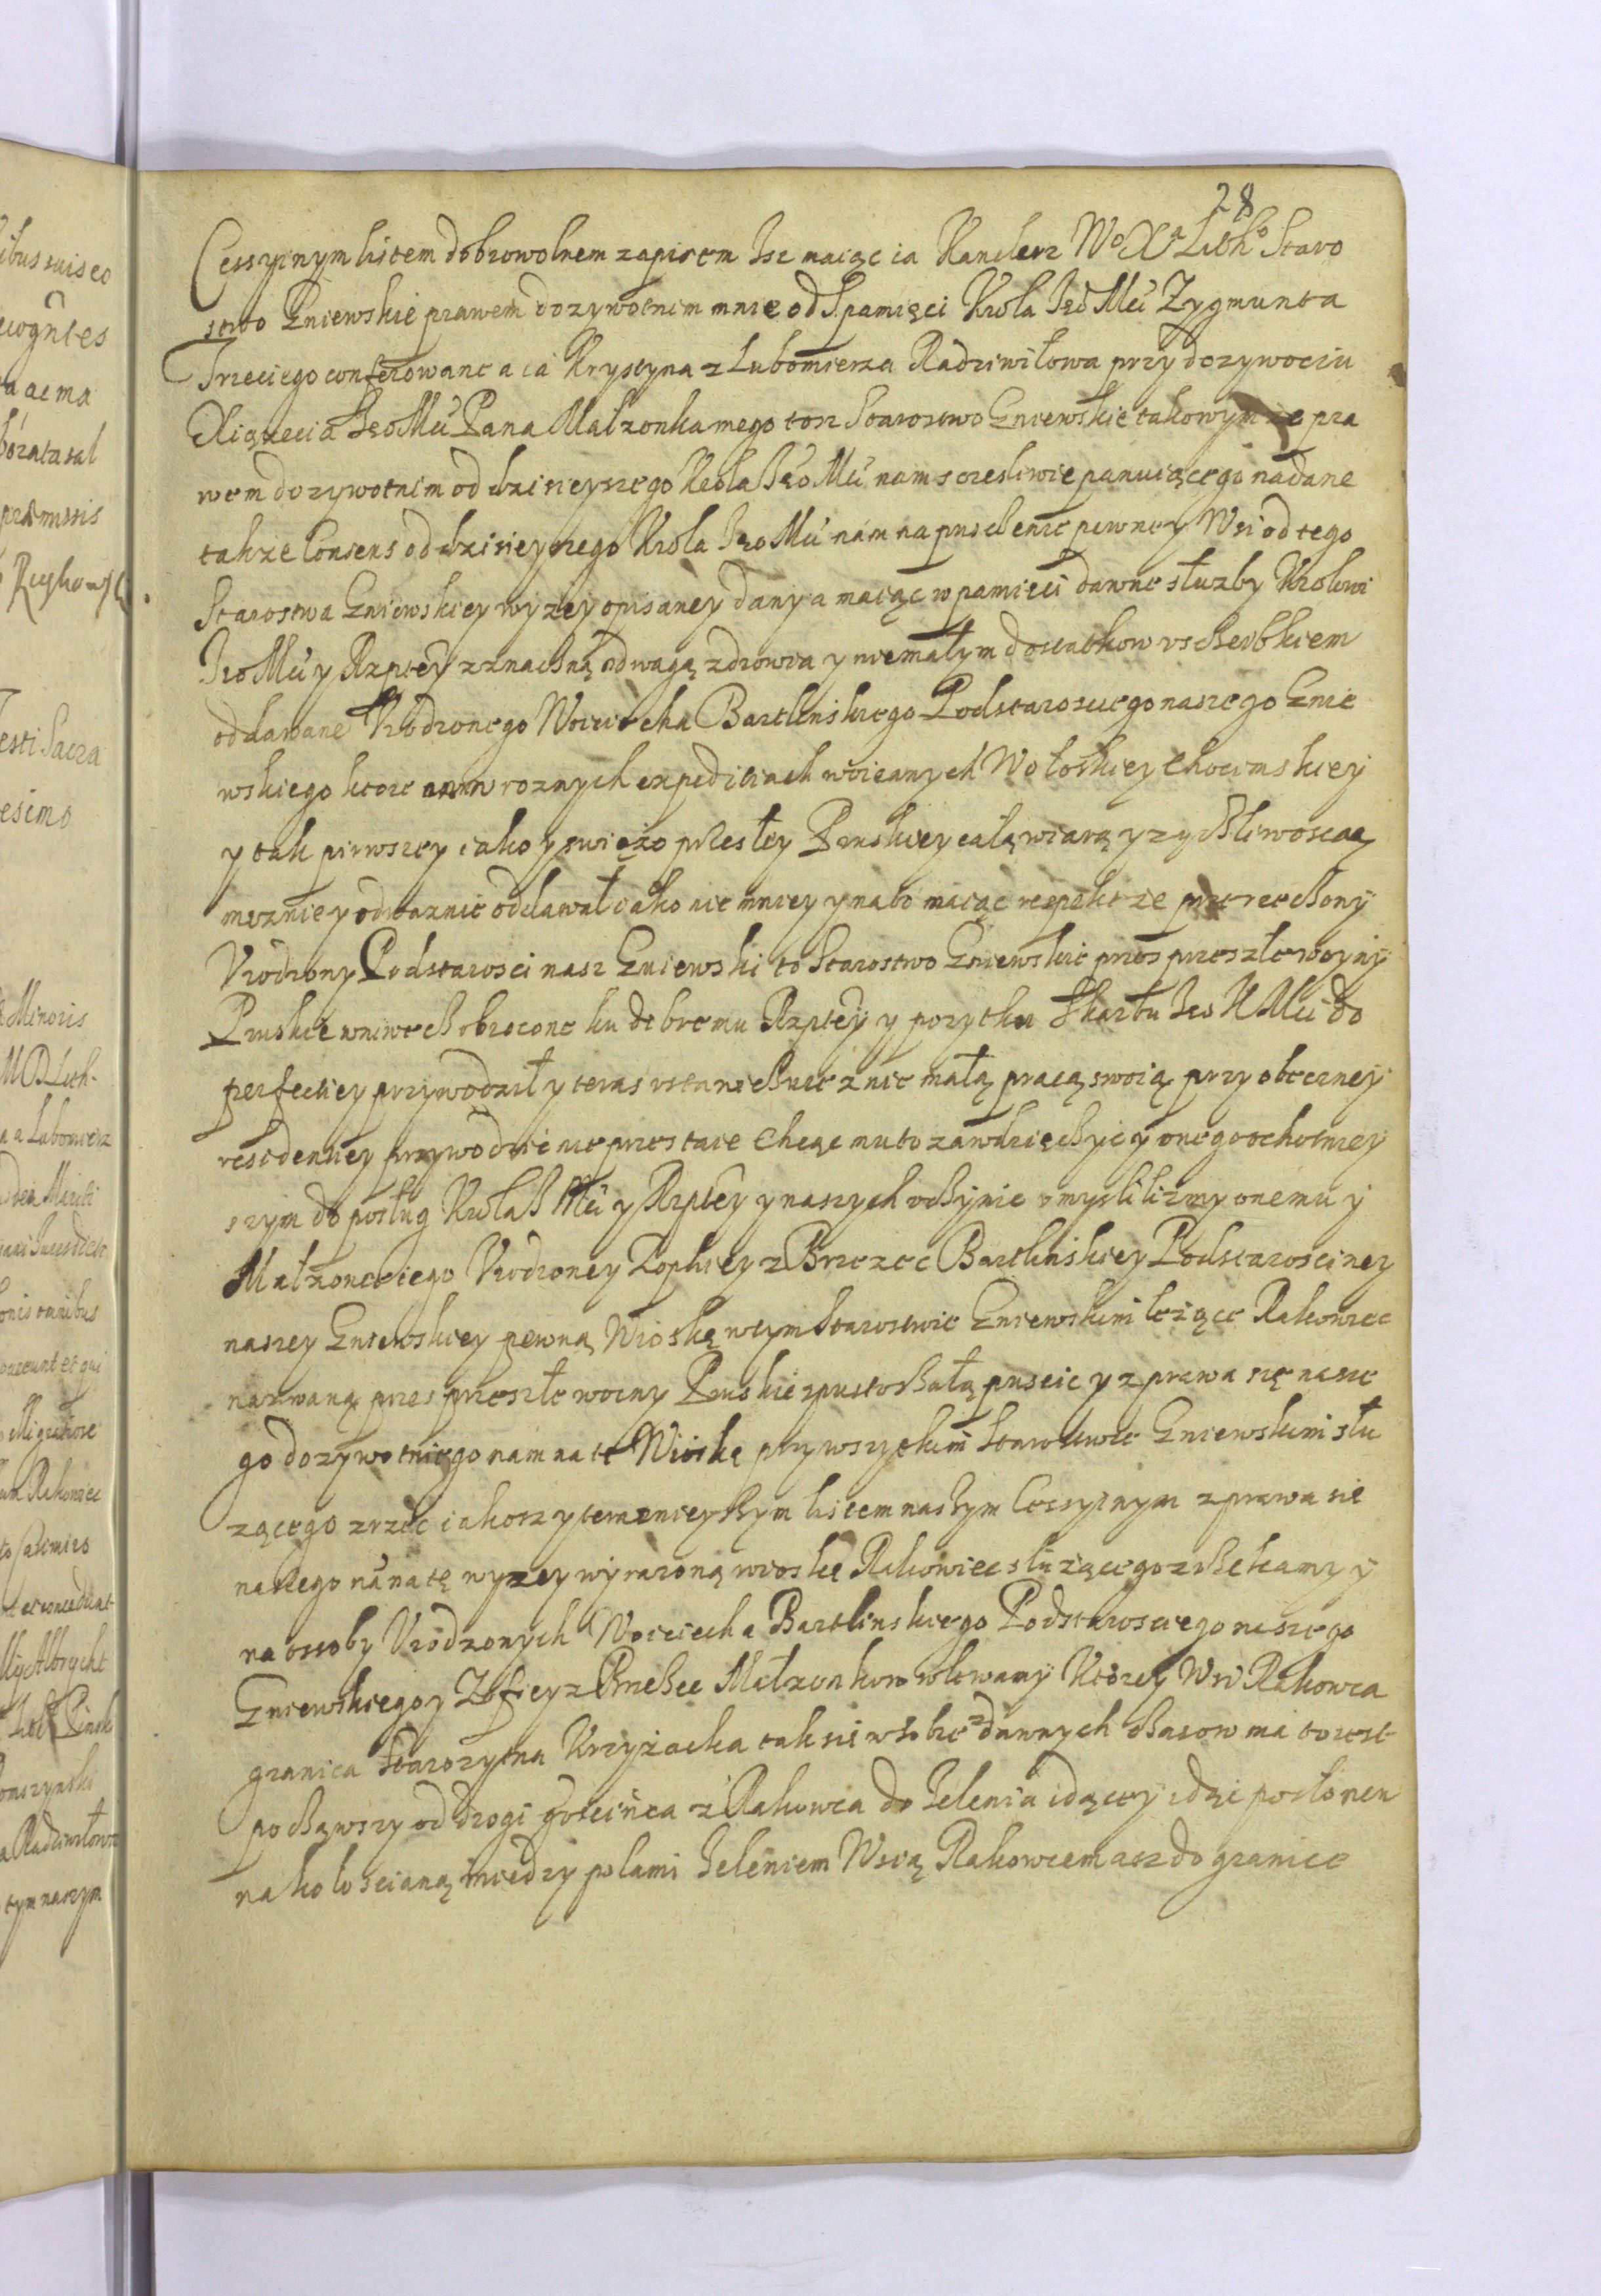 28
Cessyinym listem dobrowolnem zapisem Isz maiąc ia Kanclerz Wo Xa Litho Staro
stwo Gniewskie prawem dozywotnim mnie od S pamięci Krola Ieo Mci Zygmunta
Trzeciego conferowane a ia Krystyna z Lubomierza Radziwiłowa przy dozywociu
Xiązecia Ieo Mci Pana Małzonka mego tosz Starostwo Gniewskie takowym ze pra
wem dozywotnim od dzisieyszego Krola Ieo Mci nam sczesliwie panuiącego nadane
takze Consens od dzisieyszego Krola Ieo Mci nam na puscenie pewney Wsi od tego
Starostwa Gniewskiey wyzey opisaney dany a maiąc w pamieci dawne słuzby Krolowi
Ieo Mci y Rzptey z znaczną odwagą zdrowia y niemałym dostatkow uscherbkiem
oddawane Urodzonego Woiciecha Bartlinskiego Podstarosciego naszego Gnie
wskiego ktore w roznych expediciach woiennych Wołoskiey Chocimskiey
y tak pirwszey iako y swiężo przesłey Pruskiey całą wiarą y zyczliwoscią
męznie y odwaznie oddawał iako nie mniey y na to maiąc respekt ze przerzeczony
Urodzony Podstarosci nasz Gniewski to Starostwo Gniewskie przes przeszłe woyny
Pruskie wniwecz obrocone ku dobremu Rzptey y pozytku Skarbu Ieo K Mci do
perfectiey przywodził y teras ustawicznie z nie małą pracą swoią przy obeczney
residentiey przywodzic nie przestaie Chcąc mu to zawdzięczyc y onego ochotniey
szym do posług Krola I Mci y Rzptey y naszych uczynic umyslilizmy onemu y
Małzonce iego Urodzoney Zophiey z Brzezec Bartlinskiey Podstarosciney
naszey Gniewskiey pewną Wioskę w tym Starostwie Gniewskim lezące Rakowiec
nazwaną przes przeszłe woiny Pruskie spustoszałą puscic y z prawa się nasze
go dozywotniego nam na te Wioskę przy wszytkim Starostwie Gniewskim słu
zącego zrzec iakosz y terazniejszym listem naszym Cessyinym z prawa sie
naszego na tę wyzey wyrazoną wioske Rakowiec słuzącego zrzekamy y
na ossoby Urodzonych Woiciecha Bartlinskiego Podstarosciego naszego
Gniewskiego y Zofiey z Brzezec Małzonkow wlewamy Ktorey Wsi Rakowca
granica Starozytna Krzyzacka tak sie w sobie z dawnych czasow ma to iest
począwszy od drogi goscińca z Rakowca do Ielenia idącey idąc posłonen
na koło scianą miedzy polami Ieleniem Wsią Rakowcem asz do granice